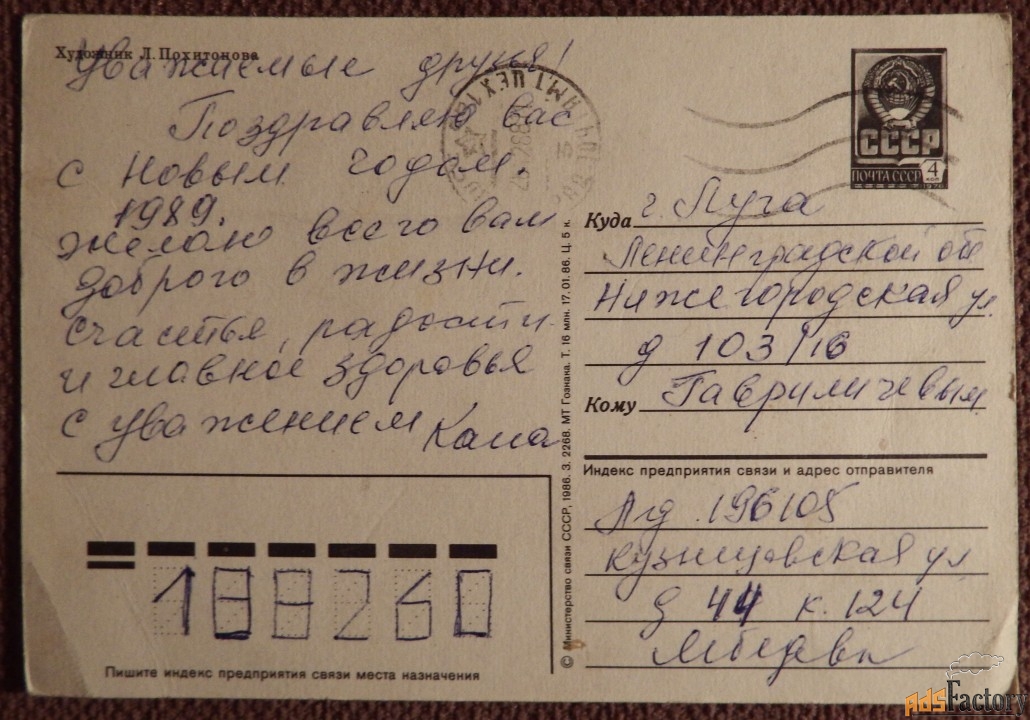 Художник Л. Похитонова
Уважаемые друзья!
Поздравляю вас
с Новым годом.
1989.
Желаю всего вам
доброго в жизни.
Счастья, радости
и главное здоровья
с уважением
СССР
ПОЧТА СССР
4
КОП
1976
Куда г. Луга
Ленинградской обл
Нижегородская ул.
д 103/16
Кому Гавриличевым
Индекс предприятия связи и адрес отправителя
Лд 196105
Кузнецовская ул
д 44 к. 124
Пишите индекс предприятия связи места назначения
© Министерство связи СССР, 1986. З. 2268. МТ Гознака. Т. 16 млн. 17.01.86. Ц. 5 к.
AdsFactory